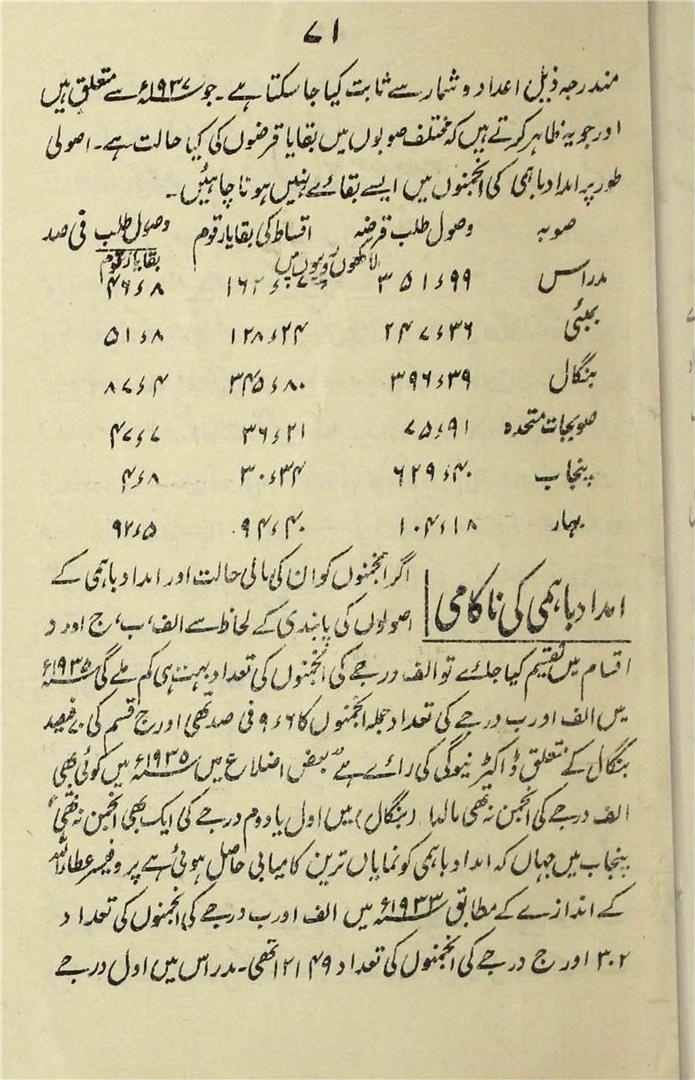 ۷۱
مندرجہ ذیل اعداد و شمار سے ثابت کیا جا سکتا ہے۔ جو ۱۹۳۷ء سے متعلق ہیں
اور جو یہ ظاہر کرتے ہیں کہ مختلف صوبوں میں بقایا قرضوں کی کیا حالت ہے۔ اصولی
طور پر امداد باہمی کی انجمنوں میں ایسے بقائے نہیں ہونا چاہئیں۔
صوبہ وصول طلب قرضہ اقساط کی بقایا رقوم وصول طلب فی صد
لاکھوں روپوں میں بقایا رقوم
مدراس ۳۵۱ء۹۹ ۴۶ء۸
بمبئی ۲۴۷ء۳۶ ۱۲۸ء۲۴ ۵۱ء۸
بنگال ۳۹۶ء۳۹ ۳۴۵ء۸۰ ۸۷ء۴
صوبجات متحدہ ۷۵ء۹۱ ۳۶ء۲۱ ۴۷ء۷
پنجاب ۶۲۹ء۴۰ ۳۰ء۳۴ ۴ء۸
بہار ۱۰۴ء۱۸ ۹۴ء۴۰ ۹۲ء۵
امداد باہمی کی ناکامی اگر انجمنوں کو ان کی مالی حالت اور امداد باہمی کے
اصولوں کی پابندی کے لحاظ سے الف، ب، ج اور د
اقسام میں تقسیم کیا جائے تو الف درجے کی انجمنوں کی تعداد بہت ہی کم ملے گی ۱۹۳۵ء
میں الف اور ب درجے کی تعداد جملہ انجمنوں کا ۹ء۶ فی صد تھی اور ج قسم کی ۷۰ فیصد
بنگال کے متعلق ڈاکٹر نیوگی کی رائے ہے "بعض اضلاع میں ۱۹۳۵ء میں کوئی بھی
الف درجے کی انجمن نہ تھی مالدا (بنگال) میں اول یا دوم درجے کی ایک بھی انجمن نہ تھی"
پنجاب میں جہاں کہ امداد باہمی کو نمایاں ترین کامیابی حاصل ہوئی ہے پروفیسر عطاء اللہ
کے اندازے کے مطابق ۱۹۳۳ء میں الف اور ب درجے کی انجمنوں کی تعداد
۳۰۲ اور ج درجے کی انجمنوں کی تعداد ۱۲۱۴۹ تھی۔ مدراس میں اول درجے